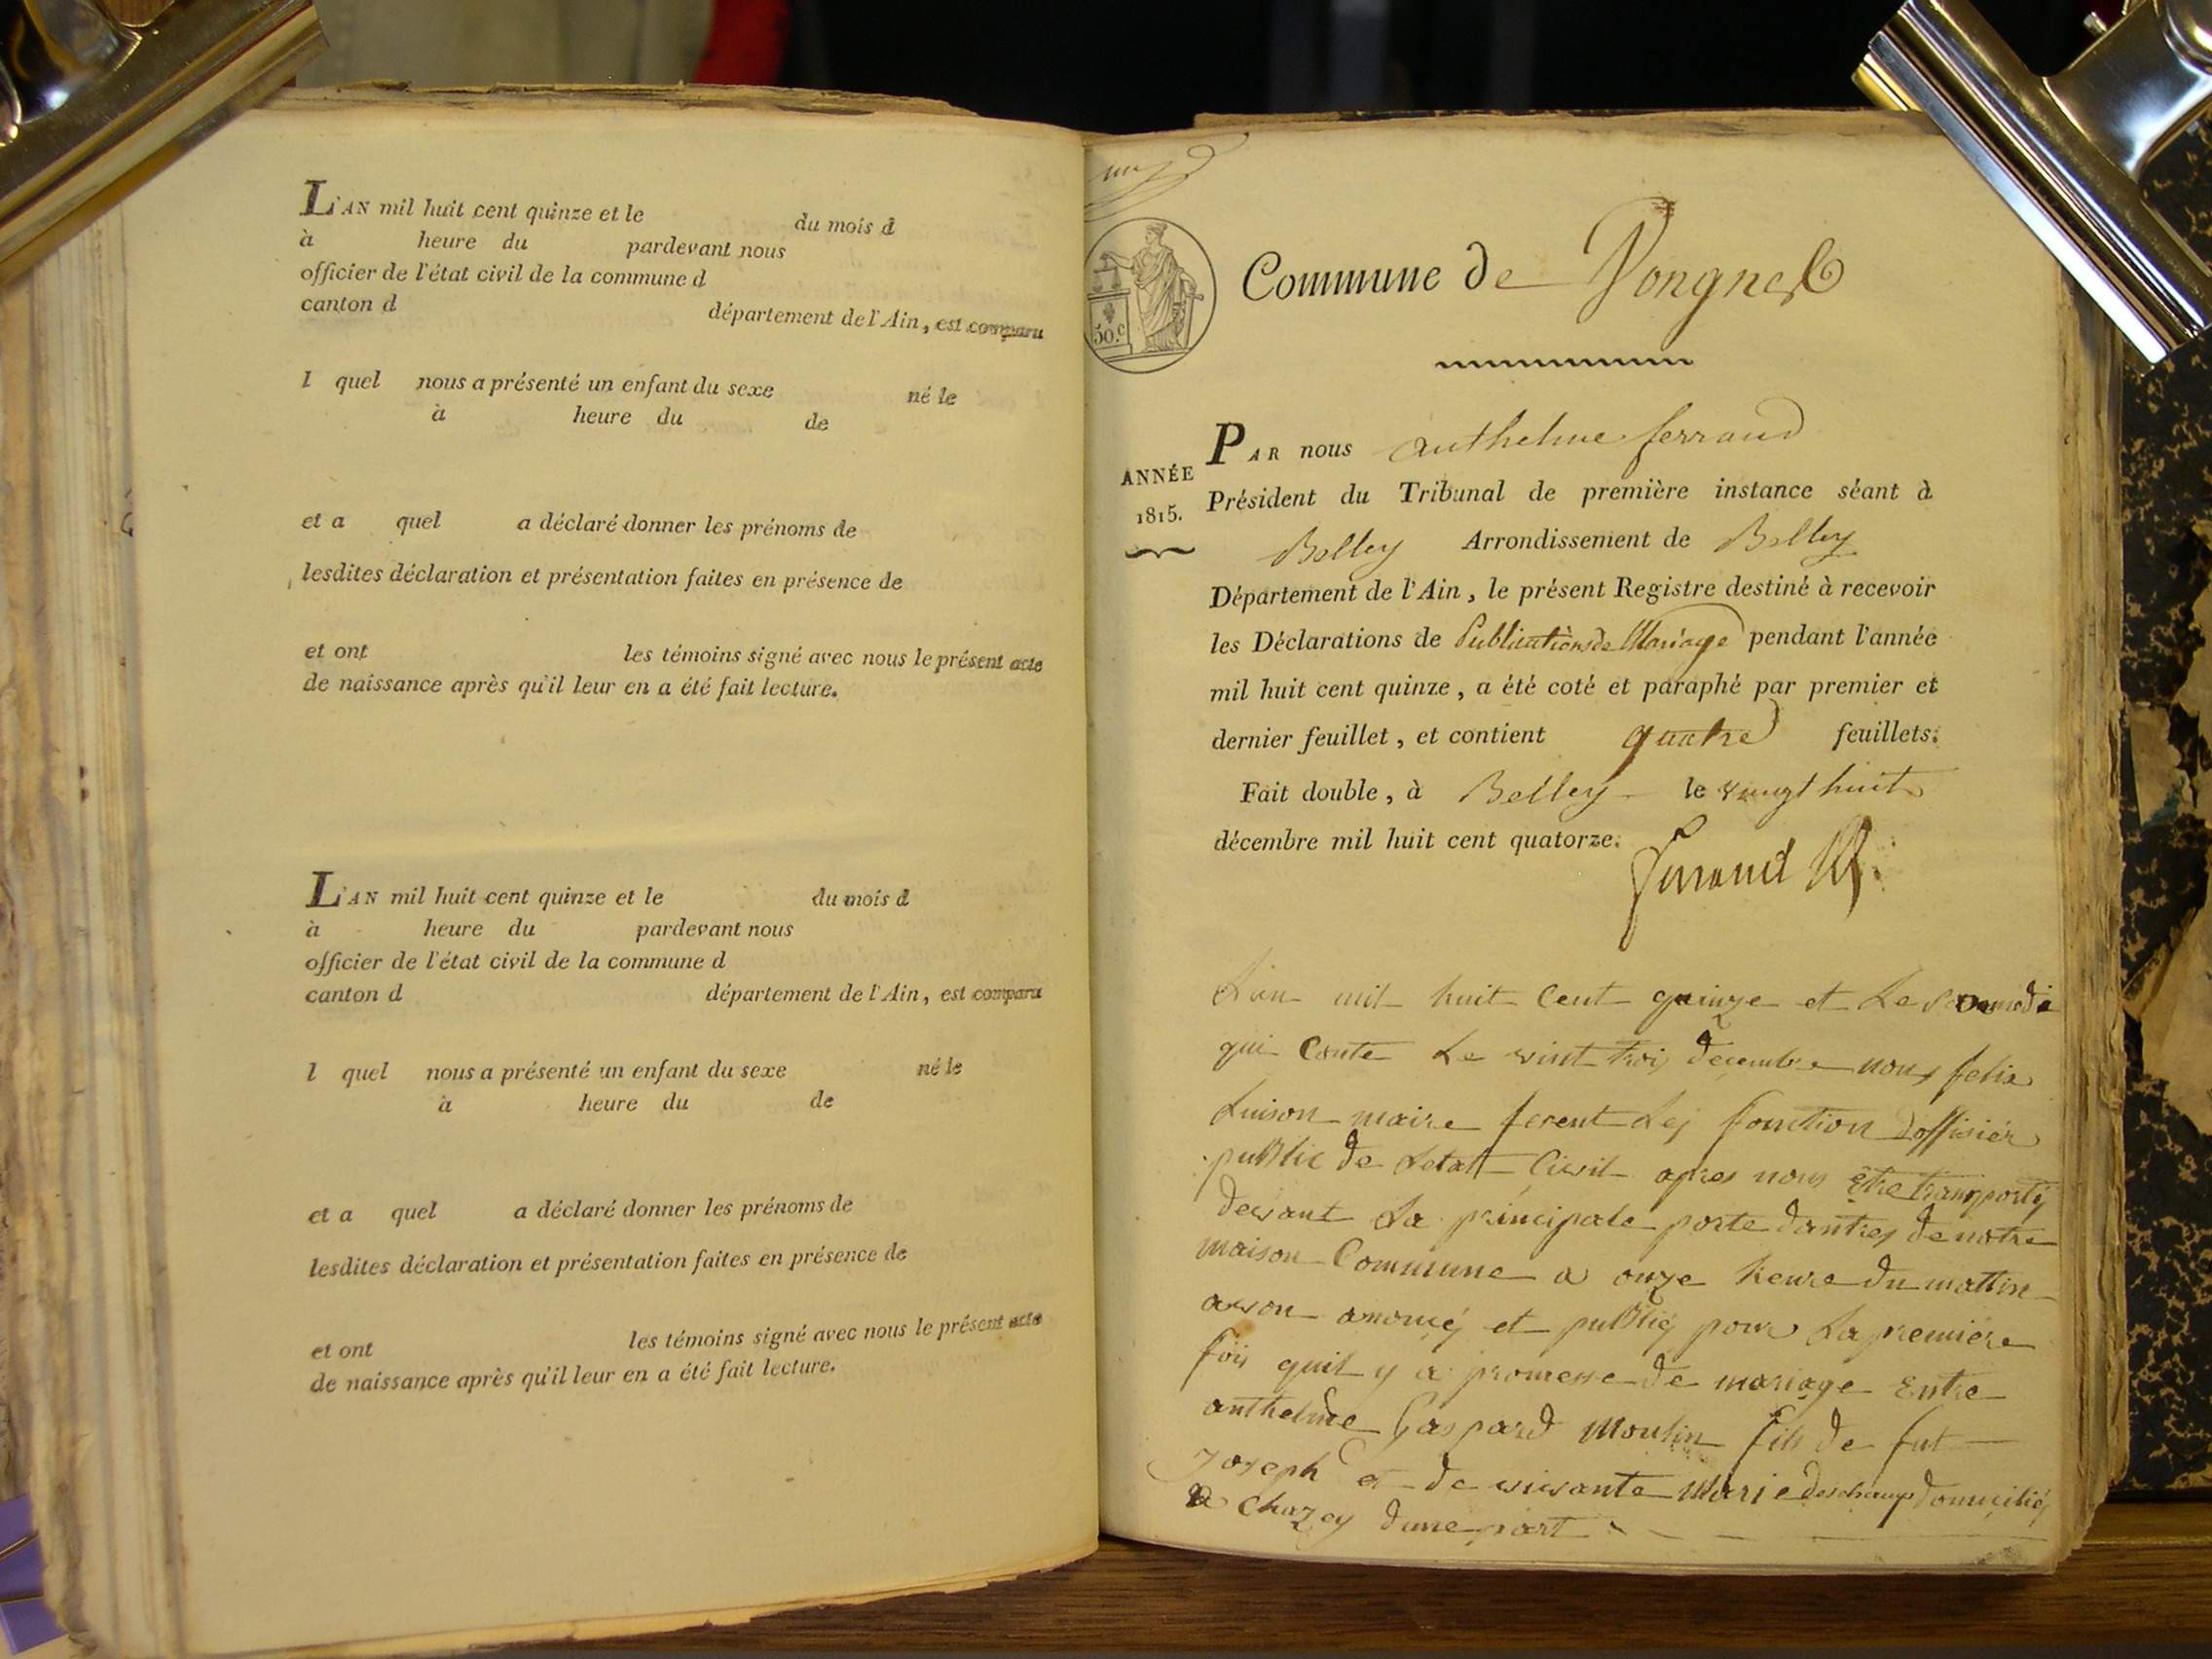 L'AN mil huit cent quinze et le du mois d
à heure du pardevant nous
officier de l'état civil de la commune d
canton d département de l'Ain, est comparu
l quel nous a présenté un enfant du sexe né le
à heure du de
et a quel a déclaré donner les prénoms de
lesdites déclaration et présentation faites en présence de
et ont les témoins signé avec nous le présent acte
de naissance après qu'il leur en a été fait lecture.
L'AN mil huit cent quinze et le du mois d
à heure du pardevant nous
officier de l'état civil de la commune d
canton d département de l'Ain, est comparu
l quel nous a présenté un enfant du sexe né le
à heure du de
et a quel a déclaré donner les prénoms de
lesdites déclaration et présentation faites en présence de
et ont les témoins signé avec nous le présent acte
de naissance après qu'il leur en a été fait lecture.
un
50.c
Commune de Vongnes
ANNÉE
1815.
PAR nous anthelme ferrand
Président du Tribunal de première instance séant à
Belley Arrondissement de Belley
Département de l'Ain, le présent Registre destiné à recevoir
les Déclarations de Publications de Mariage pendant l'année
mil huit cent quinze, a été coté et paraphé par premier et
dernier feuillet, et contient quatre feuillets.
Fait double, à Belley le vingt huit
décembre mil huit cent quatorze.
Ferrand
L'an mil huit Cent quinze et Le Samedi
qui Conte Le vint trois decembre nous felix
Luison maire ferent Les fonction doffisier
public de Letat Civil apres nous être transportés
devant La principale porte dantres de notre
maison Commune a onze heure du mattin
avon anoncé et publiés pour La premiére
fois quil y a promesse de mariage Entre
anthelme Gaspard Moulin fils de fut
Joseph et de vivante Marie deschamps domiciliés
a Chazey dune part